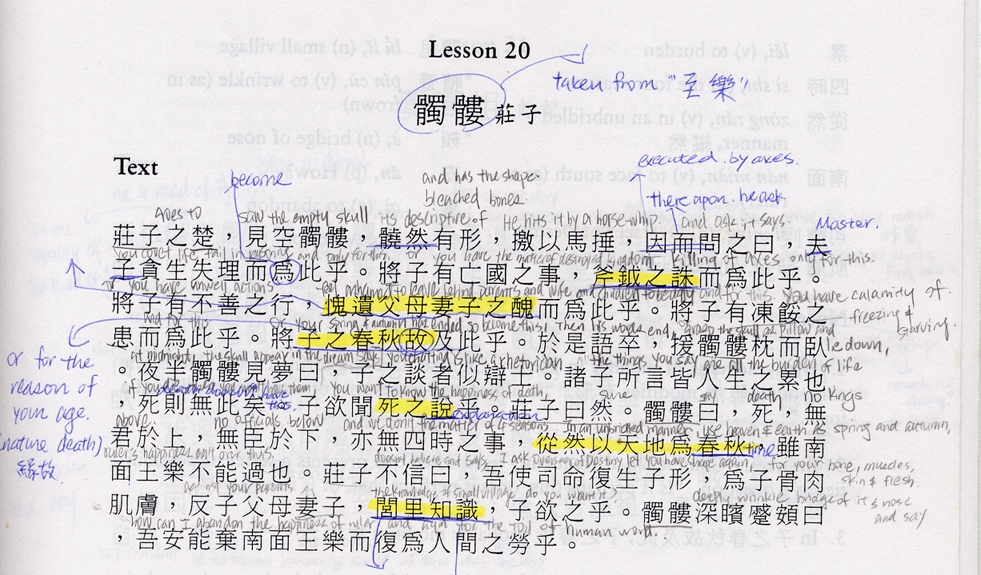 Lesson 20
taken from "至樂"
髑髏 莊子
executed by axes.
Text
become
and has the shape
bleached bones
there upon he ask
goes to saw the empty skull its descriptive of He hits it by a horse-whip and ask it says. Master.
莊子之楚，見空髑髏，髐然有形，撽以馬捶，因而問之曰，夫
子貪生失理而爲此乎。將子有亡國之事，斧鉞之誅而爲此乎。
or you have unwell actions
將子有不善之行，愧遺父母妻子之醜而爲此乎。將子有凍餒之
you have calamity of freezing & starving.
患而爲此乎。將子之春秋故及此乎。於是語卒，援髑髏枕而臥
lie down,
or for the
reason of
your age.
(nature death)
緣故
at midnight, the skull appear in the dream says, you chatting is like a rhetorician all the things you say are all the burden of life
。夜半髑髏見夢曰，子之談者似辯士。諸子所言皆人生之累也
You want to know the happiness of death sure say death, no kings
，死則無此矣。子欲聞死之說乎。莊子曰然。髑髏曰，死，無
explanation
above no officials below and we don't the matter of 4 seasons In an unbridled manner, use heaven & earth as spring and autumn,
君於上，無臣於下，亦無四時之事，從然以天地爲春秋，雖南
time
doesn't believe and says, I ask Overseer of Destiny let you have shape again, for your bone, muscles, skin & flesh.
面王樂不能過也。莊子不信曰，吾使司命復生子形，爲子骨肉
the knowledge of small village do you want it? deeply wrinkle bridge of its nose and say
肌膚，反子父母妻子，閭里知識，子欲之乎。髑髏深矉蹙頞曰
how can I abandon the happiness of ruler and again for the toil of human word.
，吾安能棄南面王樂而復爲人間之勞乎。